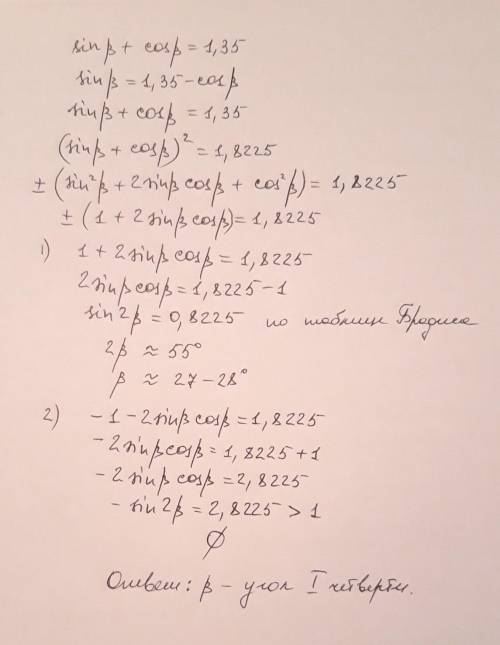 sinβ + cosβ = 1,35
sinβ = 1,35 - cosβ
sinβ + cosβ = 1,35
(sinβ + cosβ)² = 1,8225
± (sin²β + 2sinβ cosβ + cos²β) = 1,8225
± (1 + 2sinβ cosβ) = 1,8225
1) 1 + 2sinβ cosβ = 1,8225
2sinβ cosβ = 1,8225 - 1
sin2β = 0,8225 по таблице Брадиса
2β ≈ 55°
β ≈ 27-28°
2) -1 - 2sinβ cosβ = 1,8225
-2sinβ cosβ = 1,8225 + 1
-2sinβ cosβ = 2,8225
- sin2β = 2,8225 > 1
∅
Ответ: β - угол I четверти.